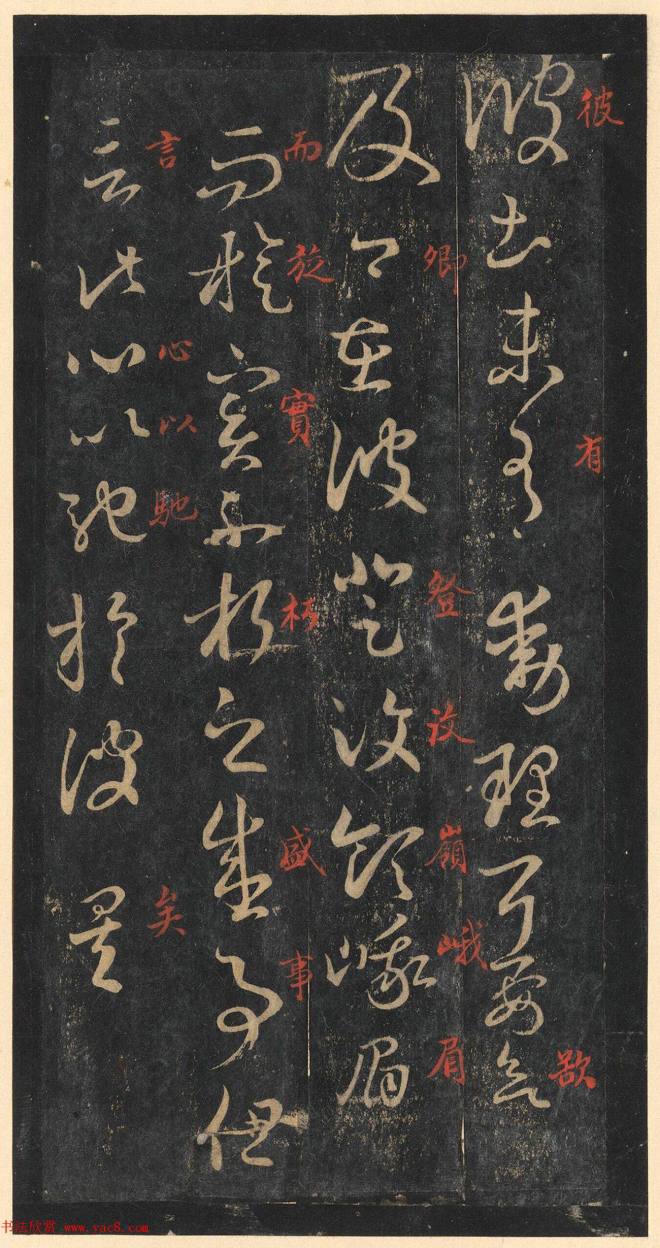 彼有欲
彼土未有動理耳要欲
卿登汶嶺峨眉
及卿在彼登汶領峨眉
而旋實朽盛事
而旋實不朽之盛事但
言心以馳矣
言此心以馳於彼矣
书法欣赏 www.yac8.com